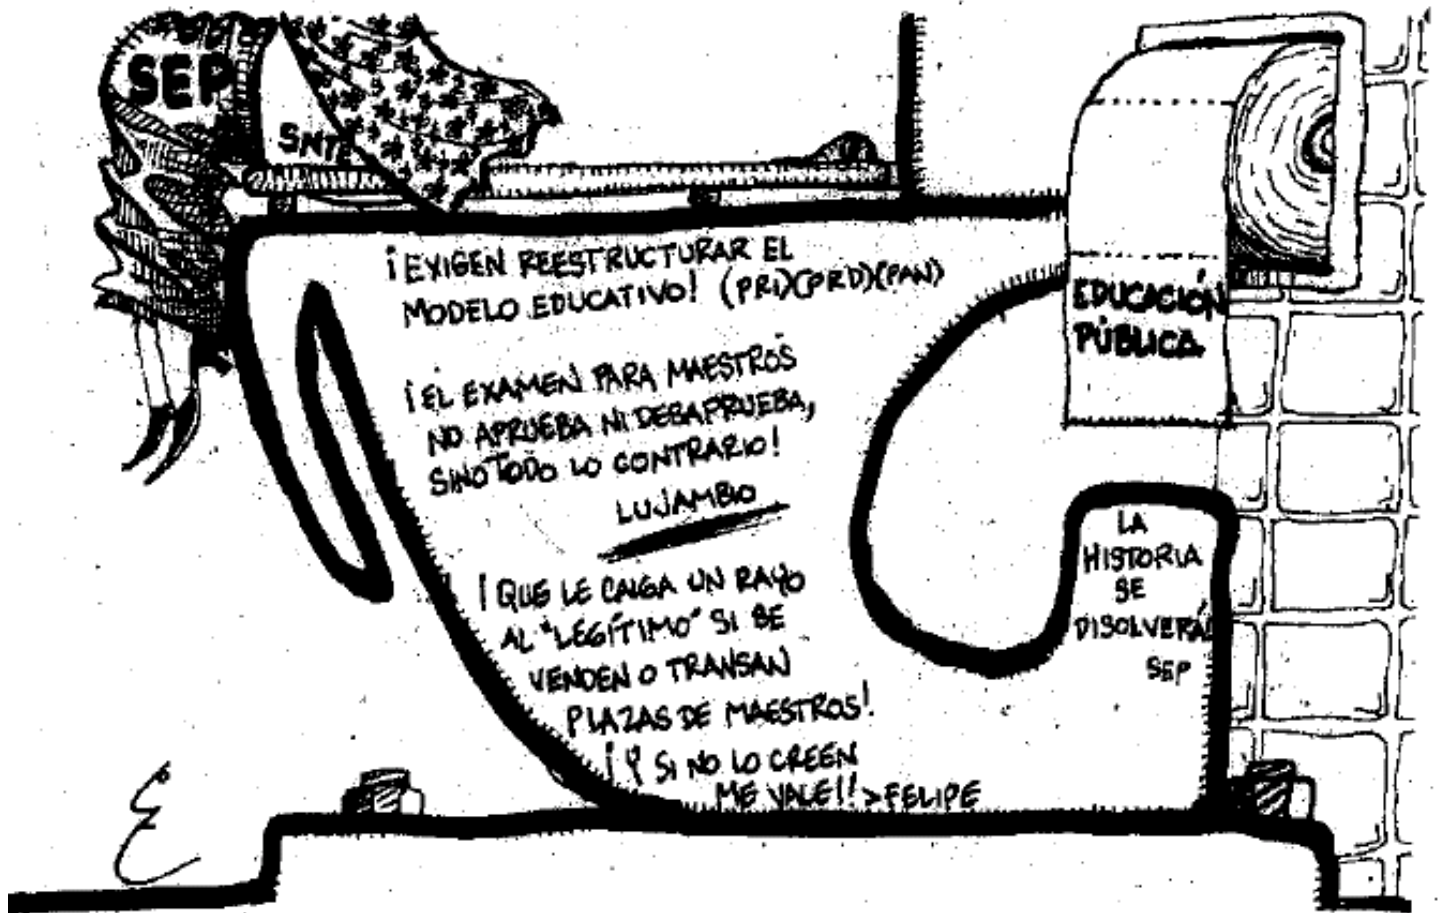 SEP
SNTE
¡EXIGEN REESTRUCTURAR EL
MODELO EDUCATIVO! (PRI)(PRD)(PAN)
¡EL EXAMEN PARA MAESTROS
NO APRUEBA NI DESAPRUEBA,
SINO TODO LO CONTRARIO!
LUJAMBIO
¡QUE LE CAIGA UN RAYO
AL "LEGÍTIMO" SI SE
VENDEN O TRANSAN
PLAZAS DE MAESTROS!
¡Y SI NO LO CREEN
ME VALE!! >FELIPE
EDUCACIÓN
PÚBLICA.
LA
HISTORIA
SE
DISOLVERÁ
SEP